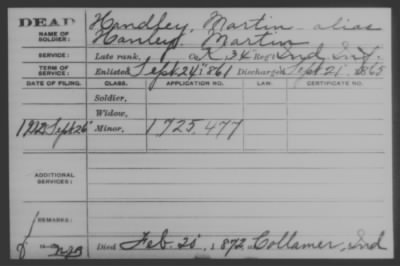 DEAD
NAME OF SOLDIER: Handley, Martin alias
Hanley, Martin
SERVICE: Late rank, Co. K, 34" Reg't Ind. Inf.
TERM OF SERVICE: Enlisted Sept. 24", 1861 Discharged Sept. 21", 1865
DATE OF FILING. CLASS. APPLICATION NO. LAW. CERTIFICATE NO.
Soldier,
Widow,
Sept. 26" Minor, 1725,477
ADDITIONAL SERVICES:
REMARKS:
Died Feb. 20", 1872, Collamer, Ind